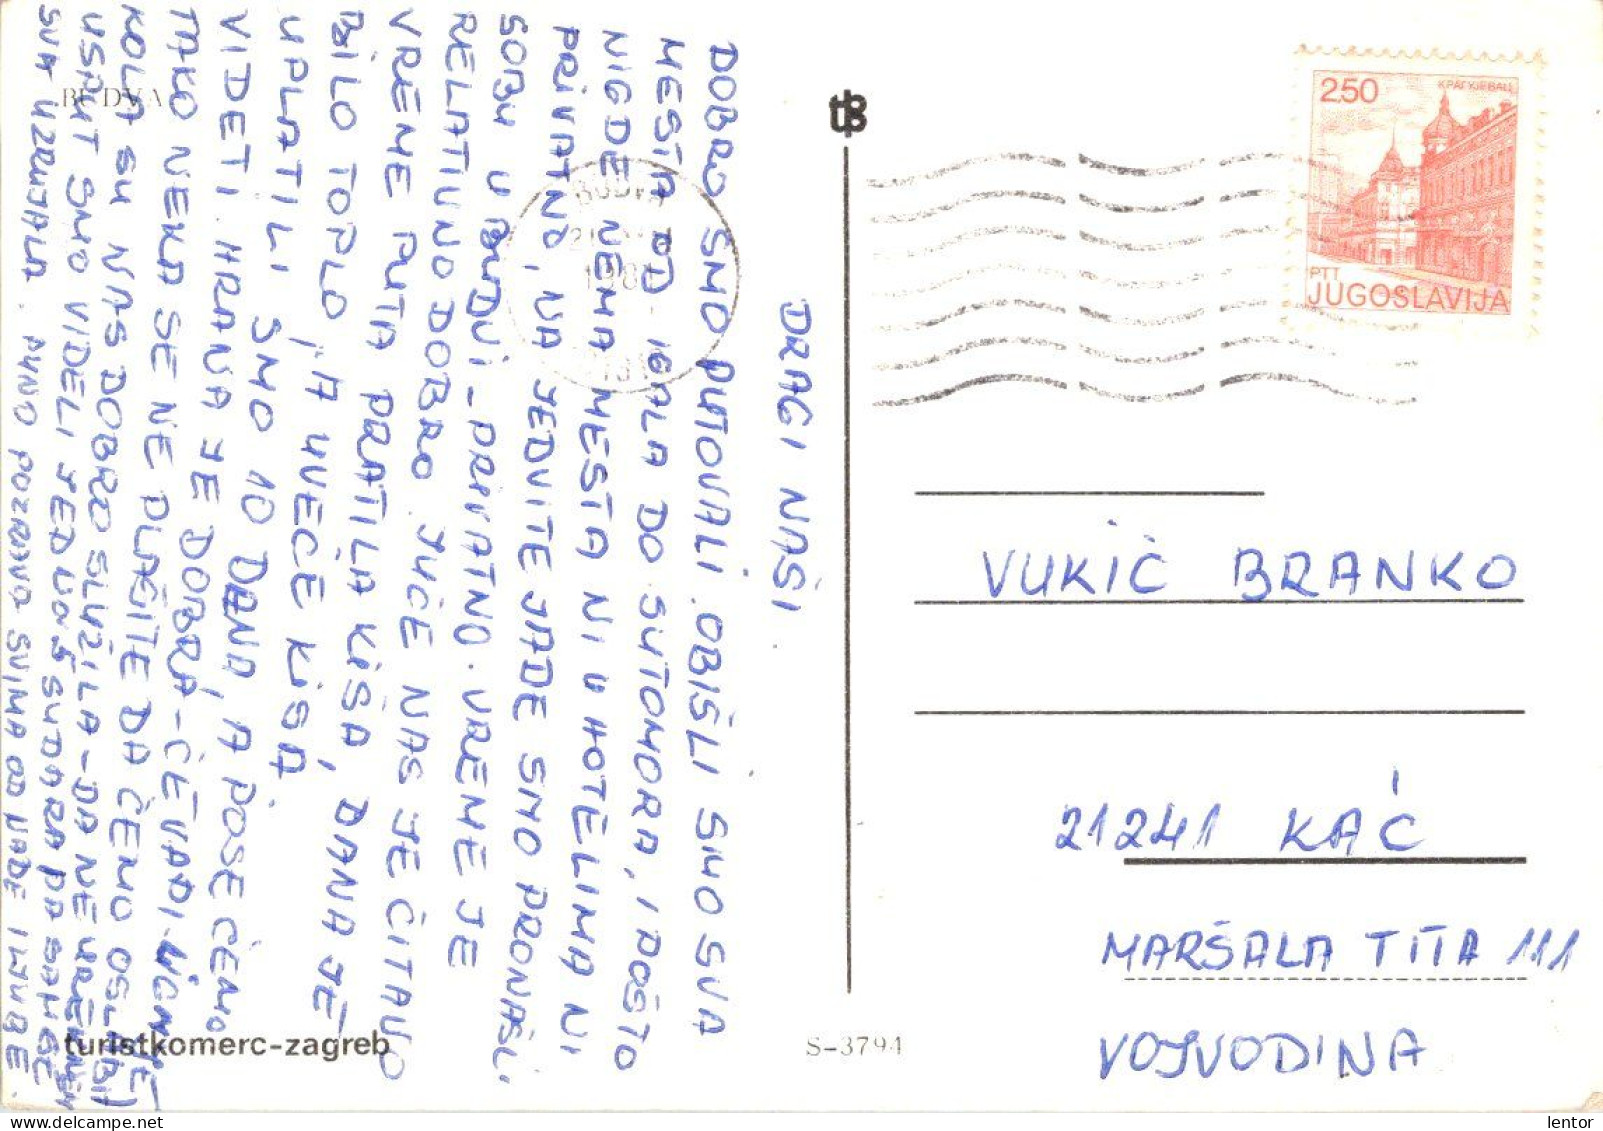 DRAGI NAŠI.
DOBRO SMO PUTOVALI. OBIŠLI SMO SVA
MESTA OD IGALA DO SUTOMORA, I POŠTO
NIGDE NEMA MESTA NI U HOTELIMA NI
PRIVATNO, NA JEDVITE JADE SMO PRONAŠLI
SOBU U BUDVI - PRIVATNO. VREME JE
RELATIVNO DOBRO. JUČE NAS JE ČITAVO
VREME PUTA PRATILA KIŠA, DANA JE
BILO TOPLO, A UVEČE KIŠA.
UPLATILI SMO 10 DANA, A POSE ČEMO
VIDETI. HRANA JE DOBRA - ČEVAPI.
TAKO NEKA SE NE PLAŠITE DA ČEMO OSLABITI
KOLA SU NAS DOBRO SLUŽILA - DA NE
USPUT SMO VIDELI JEDAN SUDAR PA SAM SE
SVA UZRUJALA. PUNO POZDRAVA SVIMA OD NAĐE I
BUDVA
turistkomerc-zagreb
S-3794
tB
BUDVA
КРАГУЈЕВАЦ
2.50
PTT
JUGOSLAVIJA
VUKIĆ BRANKO
21241 KAĆ
MARŠALA TITA 111
VOJVODINA
lentor